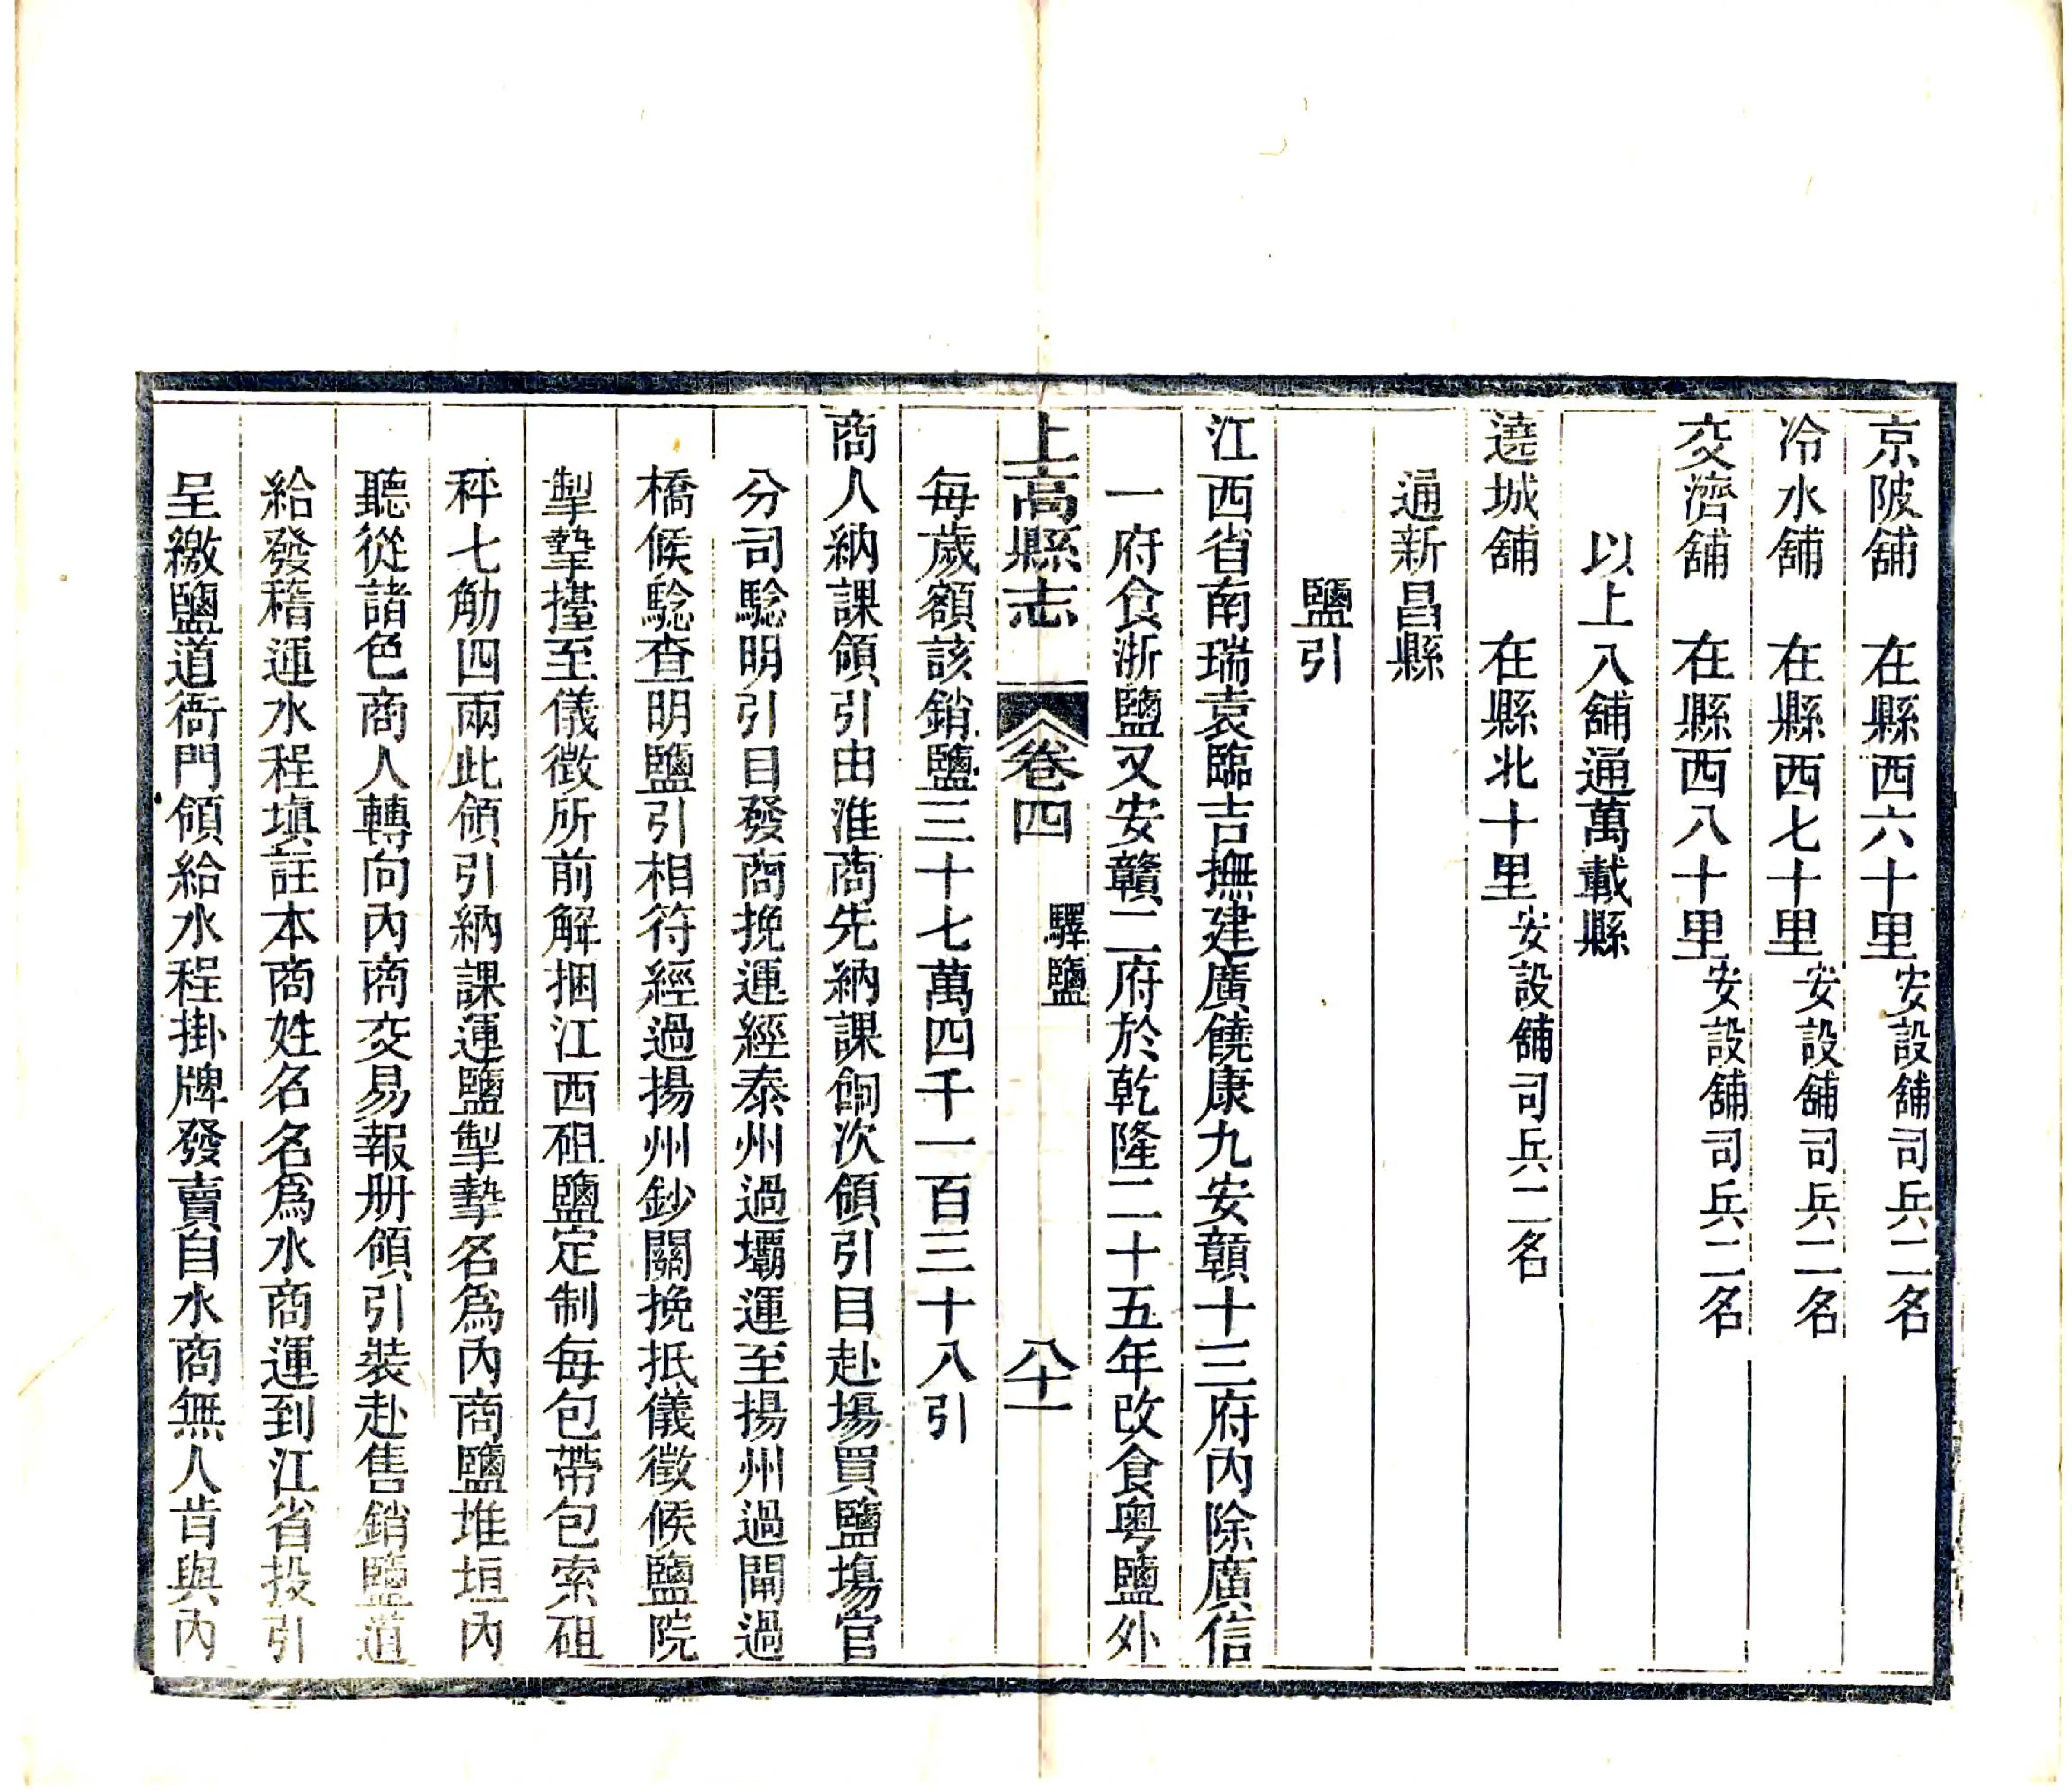 京陂舖　在縣西六十里安設舖司兵二名
冷水舖　在縣西七十里安設舖司兵二名
交濟舖　在縣西八十里安設舖司兵二名
以上八舖通萬載縣
遶城舖　在縣北十里安設舖司兵二名
通新昌縣
鹽引
江西省南瑞袁臨吉撫建廣饒康九安贛十三府內除廣信
一府食浙鹽又安贛二府於乾隆二十五年改食粵鹽外
上高縣志　卷四　驛鹽　八十一
每歲額該銷鹽三十七萬四千一百三十八引
商人納課領引由淮商先納課餉次領引目赴場買鹽場官
分司騐明引目發商挽運經泰州過壩運至揚州過閘過
橋候騐查明鹽引相符經過揚州鈔關挽抵儀徵候鹽院
掣摯擡至儀徵所前解捆江西砠鹽定制每包帶包索砠
秤七觔四兩此領引納課運鹽掣摯名爲內商鹽堆垣內
聽從諸色商人轉向內商交易報册領引裝赴售銷鹽道
給發稽運水程塡註本商姓名名爲水商運到江省投引
呈繳鹽道衙門領給水程掛牌發賣自水商無人肯與內